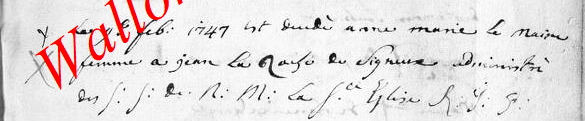 feb: 1747 est decedé anne marie le Naim
femme a jean La Roche de Signeux administré
des S: S: de N: M: La S:te Eglise R: J: P:
Wallo